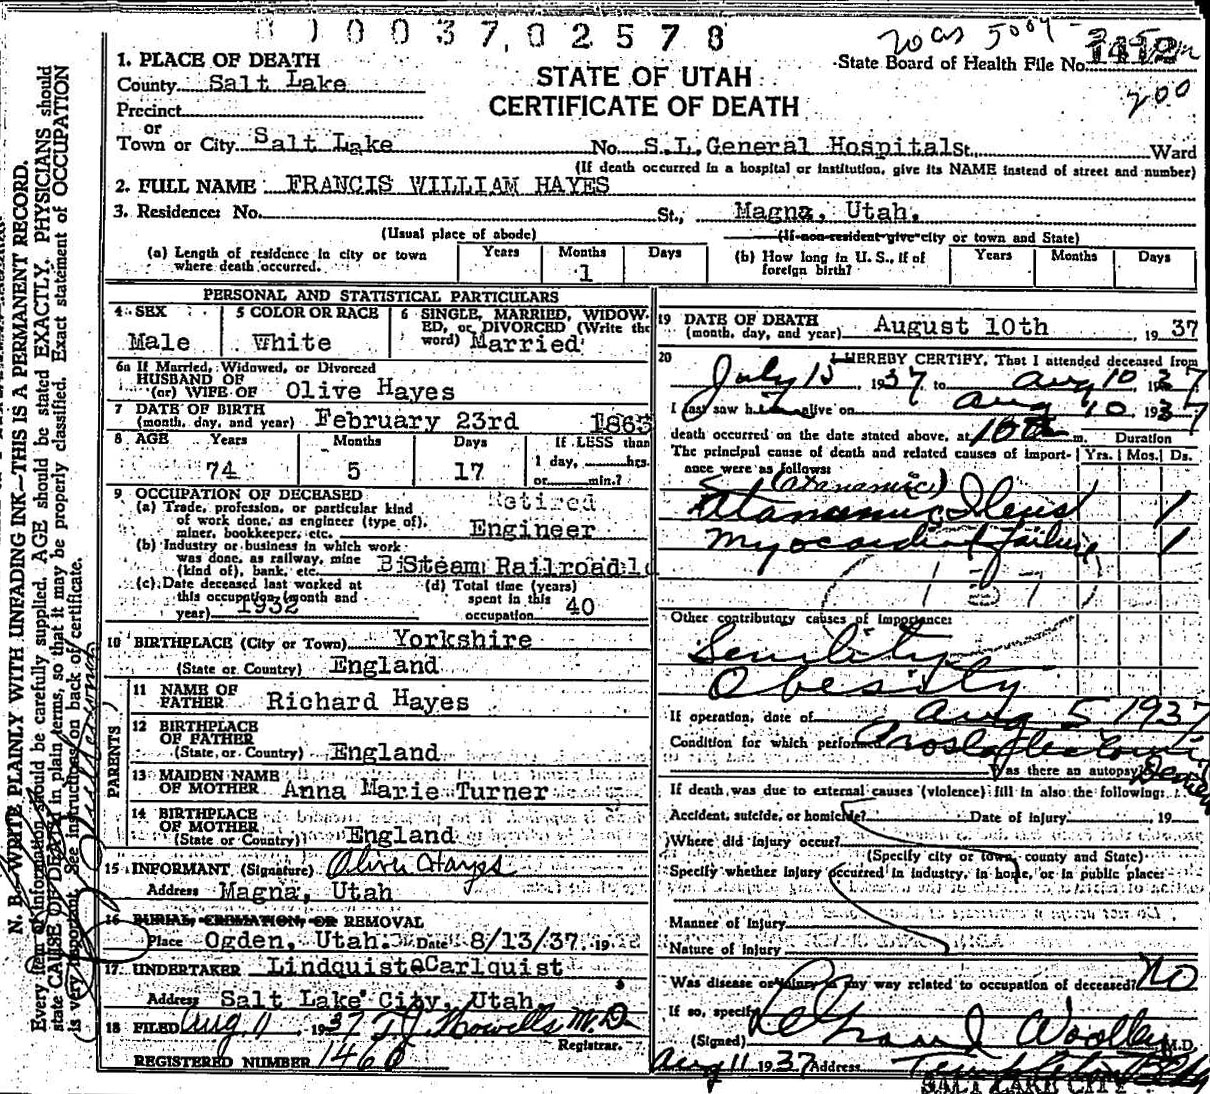 0 1 0 0 3 7, 0 2 5 7 8
State Board of Health File No.
200
STATE OF UTAH
CERTIFICATE OF DEATH
1. PLACE OF DEATH
County Salt Lake
Precinct
or
Town or City Salt Lake No. S.L. General Hospital St., Ward
(If death occurred in a hospital or institution, give its NAME instead of street and number)
2. FULL NAME FRANCIS WILLIAM HAYES
3. Residence: No. St., Magna, Utah.
(Usual place of abode) (If non-resident give city or town and State)
(a) Length of residence in city or town where death occurred. Years Months 1 Days
(b) How long in U. S., if of foreign birth? Years Months Days
PERSONAL AND STATISTICAL PARTICULARS
4 SEX Male
5 COLOR OR RACE White
6 SINGLE, MARRIED, WIDOWED, or DIVORCED (Write the word) Married
6a If Married, Widowed, or Divorced
HUSBAND OF
(or) WIFE OF Olive Hayes
7 DATE OF BIRTH
(month, day, and year) February 23rd 1863
8 AGE Years Months Days If LESS than
74 5 17 1 day, hrs.
or min.?
9 OCCUPATION OF DECEASED
(a) Trade, profession, or particular kind of work done, as engineer (type of), miner, bookkeeper, etc. Retired Engineer
(b) Industry or business in which work was done, as railway, mine (kind of), bank, etc. Steam Railroad
(c) Date deceased last worked at this occupation (month and year) 1932
(d) Total time (years) spent in this occupation 40
10 BIRTHPLACE (City or Town) Yorkshire
(State or Country) England
PARENTS
11 NAME OF FATHER Richard Hayes
12 BIRTHPLACE OF FATHER
(State or Country) England
13 MAIDEN NAME OF MOTHER Anna Marie Turner
14 BIRTHPLACE OF MOTHER
(State or Country) England
15 INFORMANT (Signature) Olive Hayes
Address Magna, Utah
16 BURIAL, CREMATION, OR REMOVAL
Place Ogden, Utah. Date 8/13/37. 19
17 UNDERTAKER Lindquist&Carlquist
Address Salt Lake City, Utah
18 FILED Aug 11, 1937 T.J. Howells M.D.
Registrar.
REGISTERED NUMBER 1460
19 DATE OF DEATH
(month, day, and year) August 10th, 1937
20 I HEREBY CERTIFY, That I attended deceased from
July 15 1937 to Aug 10, 1937
I last saw him alive on Aug 10 1937
death occurred on the date stated above, at m. Duration
The principal cause of death and related causes of importance were as follows: Yrs. Mos. Ds.
Ileus 1
Myocardial Failure 1
Other contributory causes of importance:
Senility
Obesity
If operation, date of Aug 5 1937
Condition for which performed
Was there an autopsy?
If death was due to external causes (violence) fill in also the following:
Accident, suicide, or homicide? Date of injury , 19
Where did injury occur?
(Specify city or town, county and State)
Specify whether injury occurred in industry, in home, or in public place:
Manner of injury
Nature of injury
Was disease or injury in any way related to occupation of deceased? No
If so, specify
(Signed) Woolley M.D.
Aug 11 1937 Address Templeton Bldg
SALT LAKE CITY
N. B.—WRITE PLAINLY WITH UNFADING INK—THIS IS A PERMANENT RECORD.
Every item of information should be carefully supplied. AGE should be stated EXACTLY. PHYSICIANS should
state CAUSE OF DEATH in plain terms, so that it may be properly classified. Exact statement of OCCUPATION
is very important. See instructions on back of certificate.